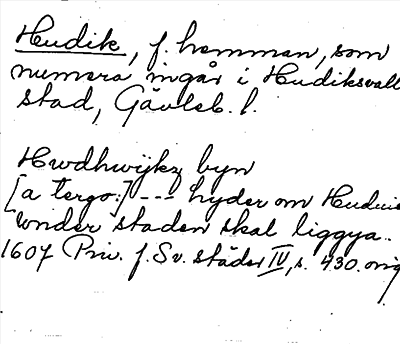 Hudik, f. hemman, som
numera ingår i Hudiksvall
stad, Gävleb. l.
Hwdhwijkz byn
[a tergo:] --- lyder om Huduis
wnder staden skal liggya.
1607 Priv. f. Sv. städer IV, s. 430. orig